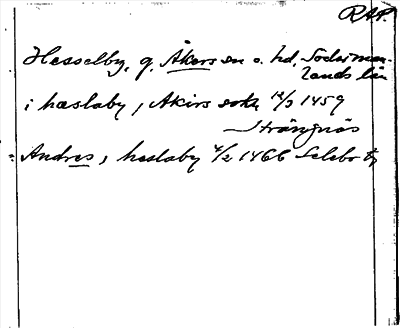 RAP.
Hesselby, g. Åkers sn o. hd, Söderman-
lands län
i hæslaby, Akirs sokn 12/3 1459
Strängnäs
Andres, heslaby 4/2 1466 Selebo